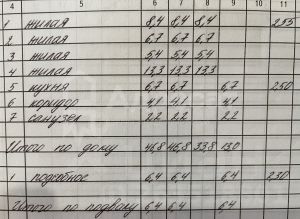 4 5 6 7 8 9 10 11
1 жилая 8,4 8,4 8,4 255
2 жилая 6,7 6,7 6,7
3 жилая 5,4 5,4 5,4
4 жилая 13,3 13,3 13,3
5 кухня 6,7 6,7 6,7 250
6 коридор 4,1 4,1 4,1
7 санузел 2,2 2,2 2,2
Итого по дому 46,8 46,8 33,8 13,0
1 подсобное 6,4 6,4 6,4 230
Итого по подвалу 6,4 6,4 6,4